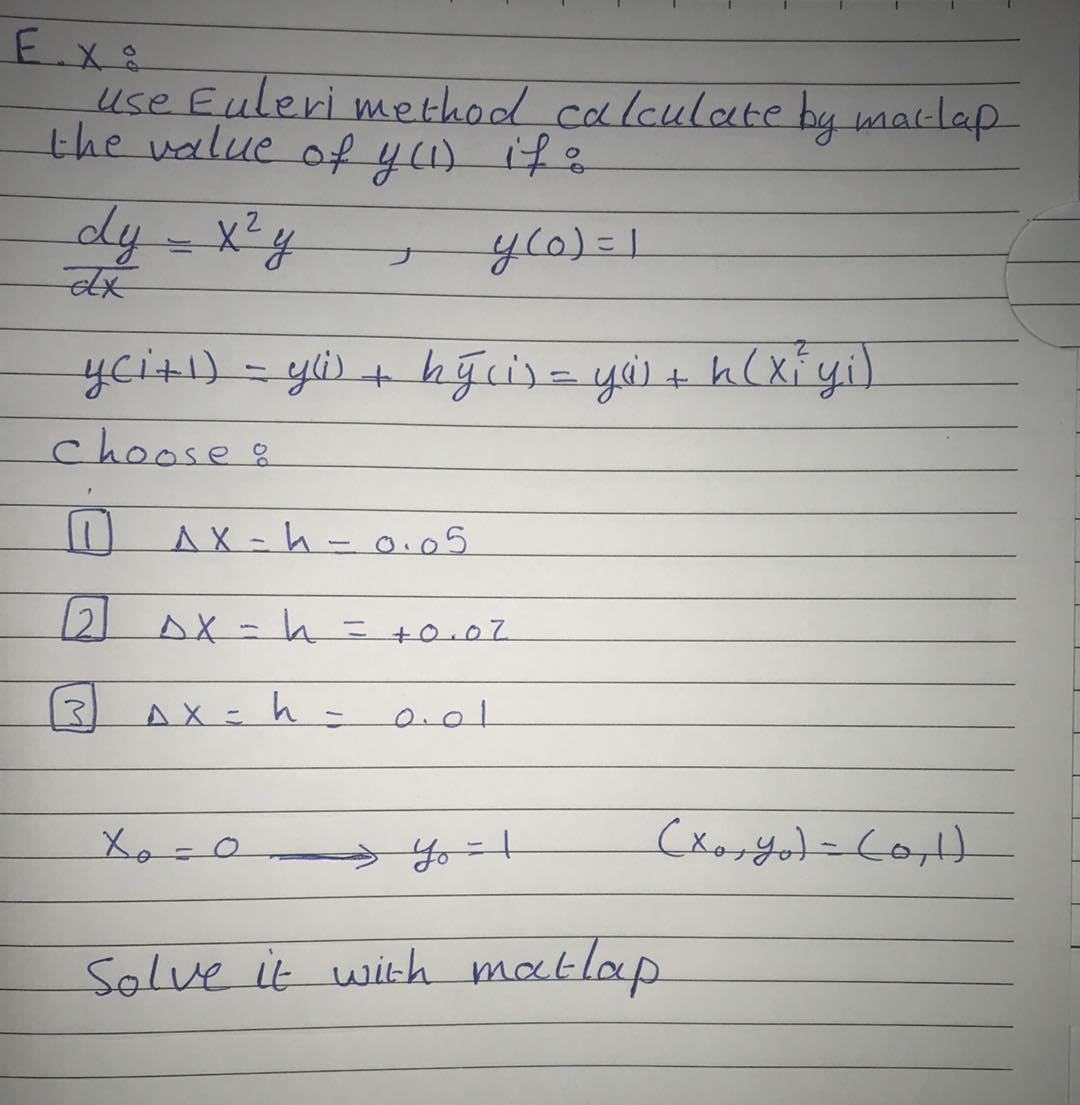 E.x:
use Euleri method calculate by matlap
the value of y(1) if:
dy/dx = x²y , y(0)=1
y(i+1) = y(i) + hȳ(i) = y(i) + h(xi²yi)
choose:
1 Δx = h = 0.05
2 Δx = h = +0.02
3 Δx = h = 0.01
x₀ = 0 → y₀ = 1 (x₀,y₀) = (0,1)
Solve it with matlap